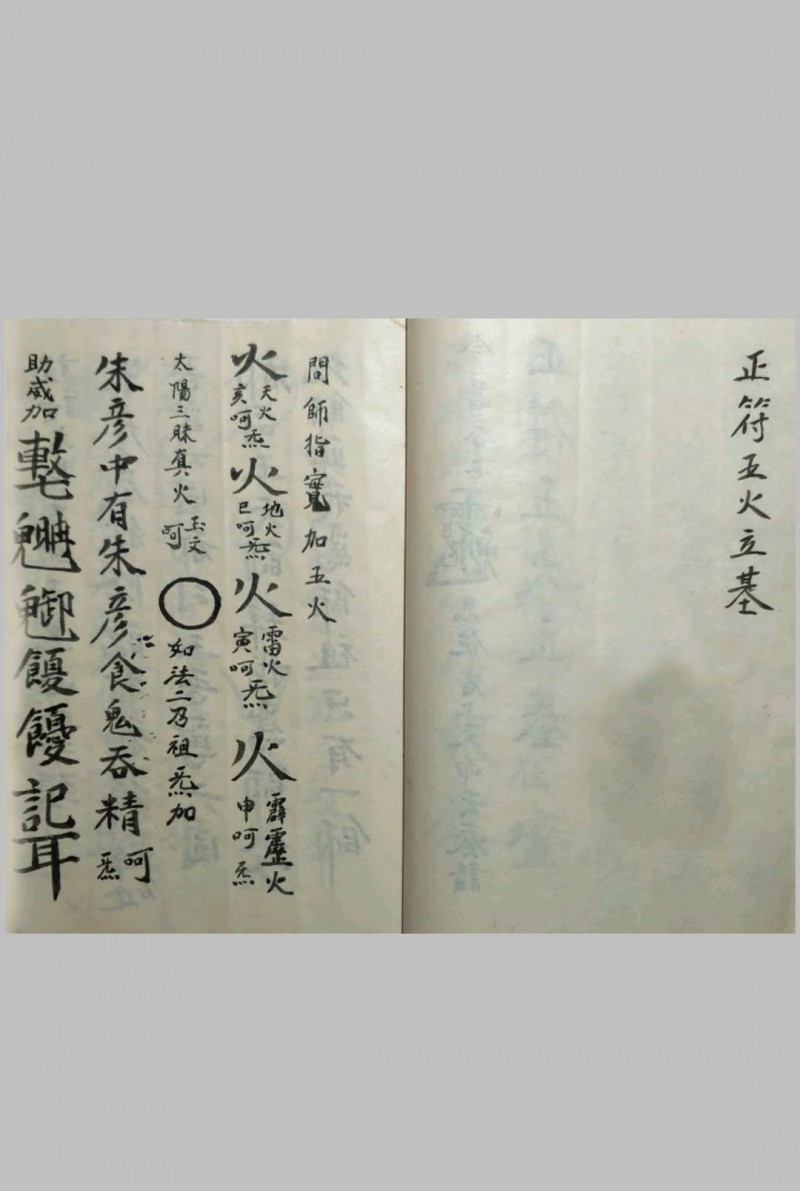 正符五火立基
問師指寬加五火
火 天火 亥呵炁 火 地火 巳呵炁 火 雷火 寅呵炁 火 霹靂火 申呵炁
太陽三昧真火 玉文呵 如法二乃祖炁加
朱彥中有朱彥食鬼吞精 呵炁
助威加 記耳